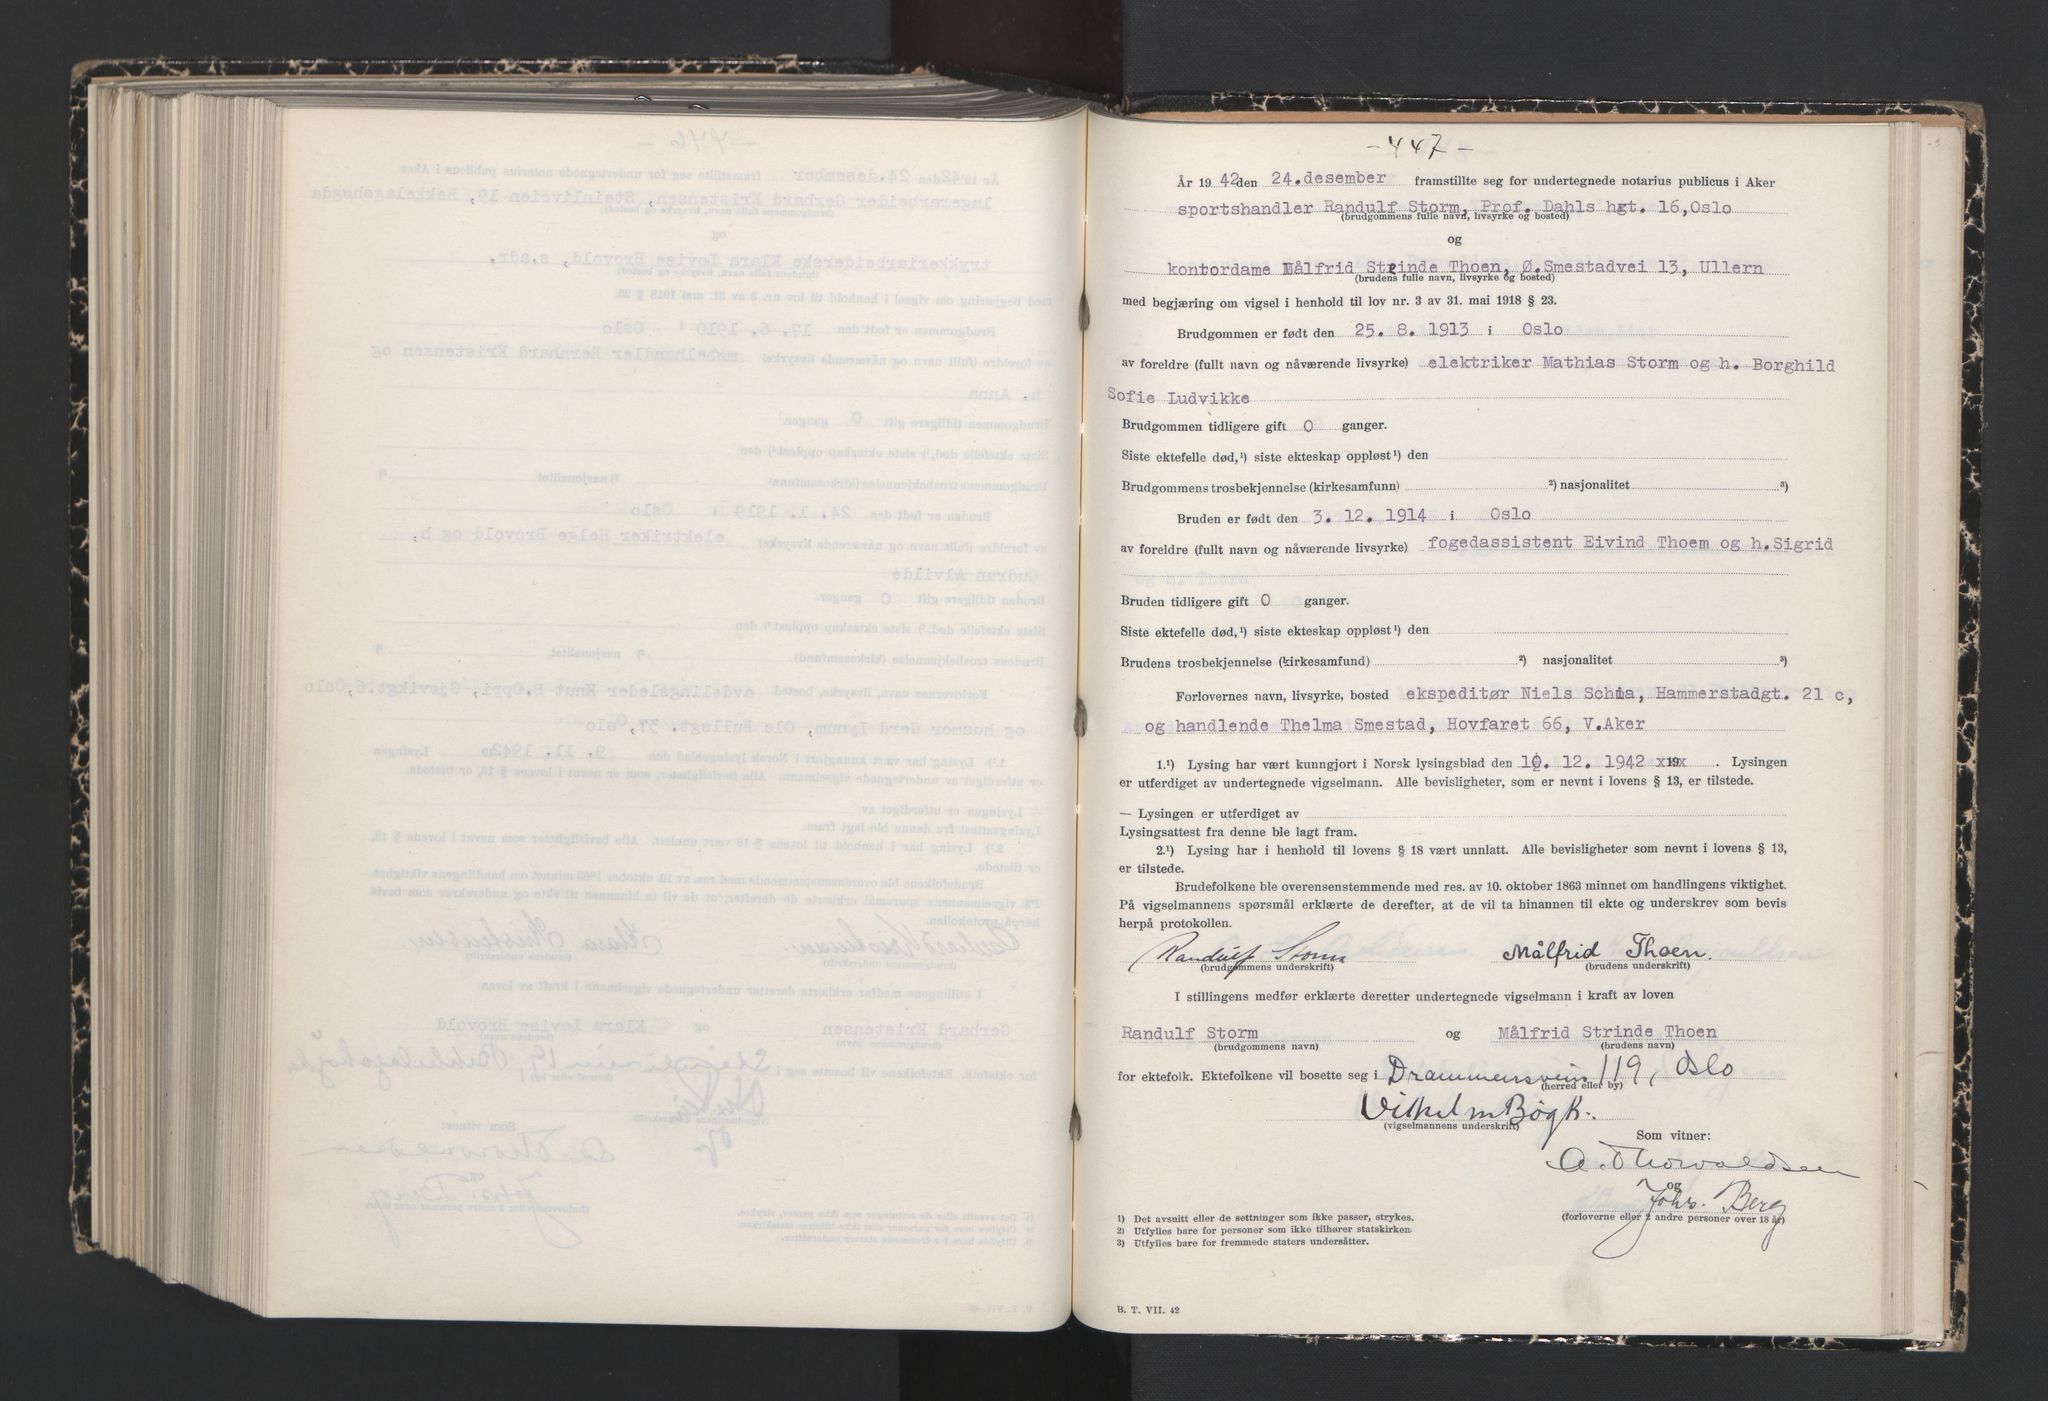 - 447 -
År 1942 den 24.desember framstillte seg for undertegnede notarius publicus i Aker
sportshandler Randulf Storm, Prof. Dahls hgt. 16,Oslo
(brudgommens fulle navn, livsyrke og bosted)
og
kontordame Målfrid Strinde Thoen, Ø.Smestadvei 13, Ullern
(brudens fulle navn, livsyrke og bosted)
med begjæring om vigsel i henhold til lov nr. 3 av 31. mai 1918 § 23.
Brudgommen er født den 25. 8. 1913 i Oslo
av foreldre (fullt navn og nåværende livsyrke) elektriker Mathias Storm og h. Borghild
Sofie Ludvikke
Brudgommen tidligere gift 0 ganger.
Siste ektefelle død,¹) siste ekteskap oppløst¹) den
Brudgommens trosbekjennelse (kirkesamfunn) ²) nasjonalitet ³)
Bruden er født den 3. 12. 1914 i Oslo
av foreldre (fullt navn og nåværende livsyrke) fogedassistent Eivind Thoem og h.Sigrid
Bruden tidligere gift 0 ganger.
Siste ektefelle død,¹) siste ekteskap oppløst¹) den
Brudens trosbekjennelse (kirkesamfund) ²) nasjonalitet ³)
Forlovernes navn, livsyrke, bosted ekspeditør Niels Schia, Hammerstadgt. 21 c,
og handlende Thelma Smestad, Hovfaret 66, V.Aker
1.¹) Lysing har vært kunngjort i Norsk lysingsblad den 10. 12. 1942 x19x . Lysingen
er utferdiget av undertegnede vigselmann. Alle bevisligheter, som er nevnt i lovens § 13, er tilstede.
— Lysingen er utferdiget av
Lysingsattest fra denne ble lagt fram.
2.¹) Lysing har i henhold til lovens § 18 vært unnlatt. Alle bevisligheter som nevnt i lovens § 13,
er tilstede.
Brudefolkene ble overensenstemmende med res. av 10. oktober 1863 minnet om handlingens viktighet.
På vigselmannens spørsmål erklærte de derefter, at de vil ta hinannen til ekte og underskrev som bevis
herpå protokollen.
Randulf Storm Målfrid Thoen.
(brudgommens underskrift) (brudens underskrift)
I stillingens medfør erklærte deretter undertegnede vigselmann i kraft av loven
Randulf Storm og Målfrid Strinde Thoen
(brudgommens navn) (brudens navn)
for ektefolk. Ektefolkene vil bosette seg i Drammensvein 119, Oslo
(herred eller by)
Vilhelm Bøgh.
(vigselmannens underskrift)
Som vitner:
A. Thorvaldsen
og
Johs. Berg
(forloverne eller 2 andre personer over 18 år)
1) Det avsnitt eller de settninger som ikke passer, strykes.
2) Utfylles bare for personer som ikke tilhører statskirken.
3) Utfylles bare for fremmede staters undersåtter.
B. T. VII. 42